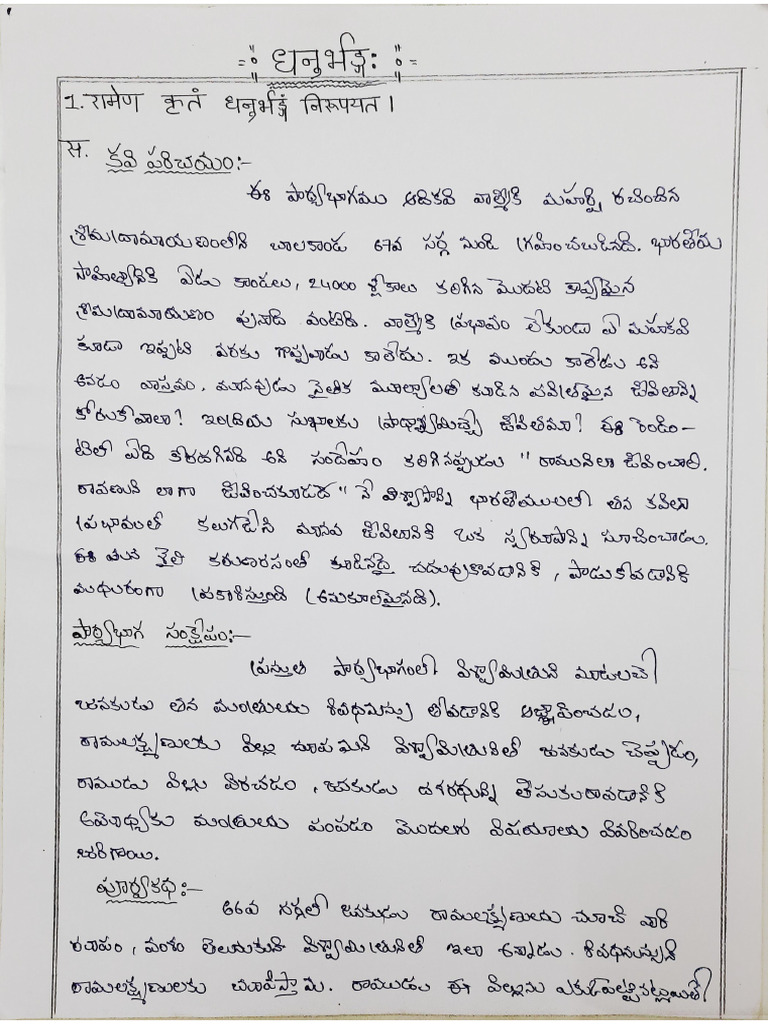 धनुर्भङ्गः
1. रामेण कृतं धनुर्भङ्गं निरूपयत ।
स. కవి పరిచయం:-
ఈ పాఠ్యభాగము ఆదికవి వాల్మీకి మహర్షి రచించిన
శ్రీమద్రామాయణంలోని బాలకాండ 67వ సర్గ నుండి గ్రహించబడినది. భారతీయ
సాహిత్యానికి ఏడు కాండలు, 24000 శ్లోకాలు కలిగిన మొదటి కావ్యమైన
శ్రీమద్రామాయణం పునాది వంటిది. వాల్మీకి ప్రభావం లేకుండా ఏ మహాకవి
కూడా ఇప్పటి వరకు గొప్పవాడు కాలేదు. ఇక ముందు కాలేడు అని
అనడం వాస్తవం. మానవుడు నైతిక మూల్యాలతో కూడిన పవిత్రమైన జీవితాన్ని
కోరుకోవాలా? ఇంద్రియ సుఖాలకు ప్రాధాన్యమిచ్చే జీవితమా? ఈ రెండిం-
టిలో ఏది కోరదగినది అని సందేహం కలిగినప్పుడు " రామునిలా జీవించాలి.
రావణుని లాగా జీవించకూడదు " నే విశ్వాసాన్ని భారతీయులలో తన కవితా
ప్రభావంతో కలుగజేసి మానవ జీవితానికి ఒక స్వరూపాన్ని సూచించాడు.
ఈ శైలి కరుణరసంతో కూడినదై చదువుకోవడానికి, పాడుకోవడానికి
మధురంగా ప్రకాశిస్తుంది (అనుకూలమైనది).
పాఠ్యభాగ సంక్షేపం:-
ప్రస్తుత పాఠ్యభాగంలో విశ్వామిత్రుని మాటలచే
జనకుడు తన మంత్రులను శివధనస్సు తేవడానికి ఆజ్ఞాపించడం,
రామలక్ష్మణులకు విల్లు చూపమని విశ్వామిత్రునితో జనకుడు చెప్పడం,
రాముడు విల్లు విరచడం, జనకుడు దశరథున్ని తీసుకురావడానికి
అయోధ్యకు మంత్రులను పంపడం మొదలగు విషయాలు వివరించడం
జరిగాయి.
పూర్వకథ:-
66వ సర్గలో జనకుడు రామలక్ష్మణులను చూచి వారి
రూపం, వంశం తెలుసుకుని విశ్వామిత్రునితో ఇలా అన్నాడు. శివధనుస్సుని
రామలక్ష్మణులకు చూపిస్తాను. రాముడు ఈ విల్లును ఎక్కుపెట్టినట్లయితే